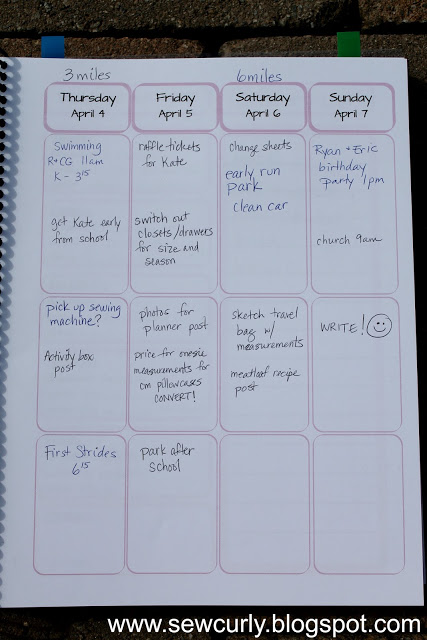 3 miles
6 miles
Thursday
April 4
Friday
April 5
Saturday
April 6
Sunday
April 7
Swimming
R+CG 11am
K - 3¹⁵
get Kate early
from school
raffle tickets
for Kate
switch out
closets/drawers
for size and
season
change sheets
early run
park
clean car
Ryan + Eric
birthday
party 1pm
church 9am
pick up sewing
machine?
Activity box
post
photos for
planner post
price for onesie
measurements for
cm pillowcases
CONVERT!
sketch travel
bag w/
measurements
meatloaf recipe
post
WRITE!
First Strides
6¹⁵
park after
school
www.sewcurly.blogspot.com